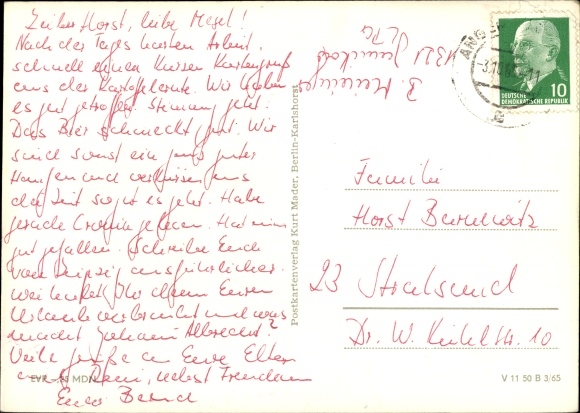 Lieber Horst, liebe Mesel!
Nach des Tages harten Arbeit
schnell einen kurzen Kartengruß
aus der Kartoffelernte. Wir haben
es gut getroffen, Stimmung jetzt.
Das Bier schmeckt gut. Wir
sind sonst ein ganz guter
Haufen und
die Zeit so gut es geht. Habe
gerade gesehen. Hat mir
gut gefallen. Schreibe Euch
von Leipzig ausführlicher.
Wie habt Ihr denn Euren
Urlaub verbracht und was
macht Albrecht?
Viele Grüße an Eure Eltern
und, nebst Freundin
Euer Bernd
EVP MDN
B.
4321
Postkartenverlag Kurt Mader, Berlin-Karlshorst
10
DEUTSCHE
DEMOKRATISCHE REPUBLIK
Familie
Horst
23 Stralsund
Dr. W. Külz Str. 10
V 11 50 B 3/65